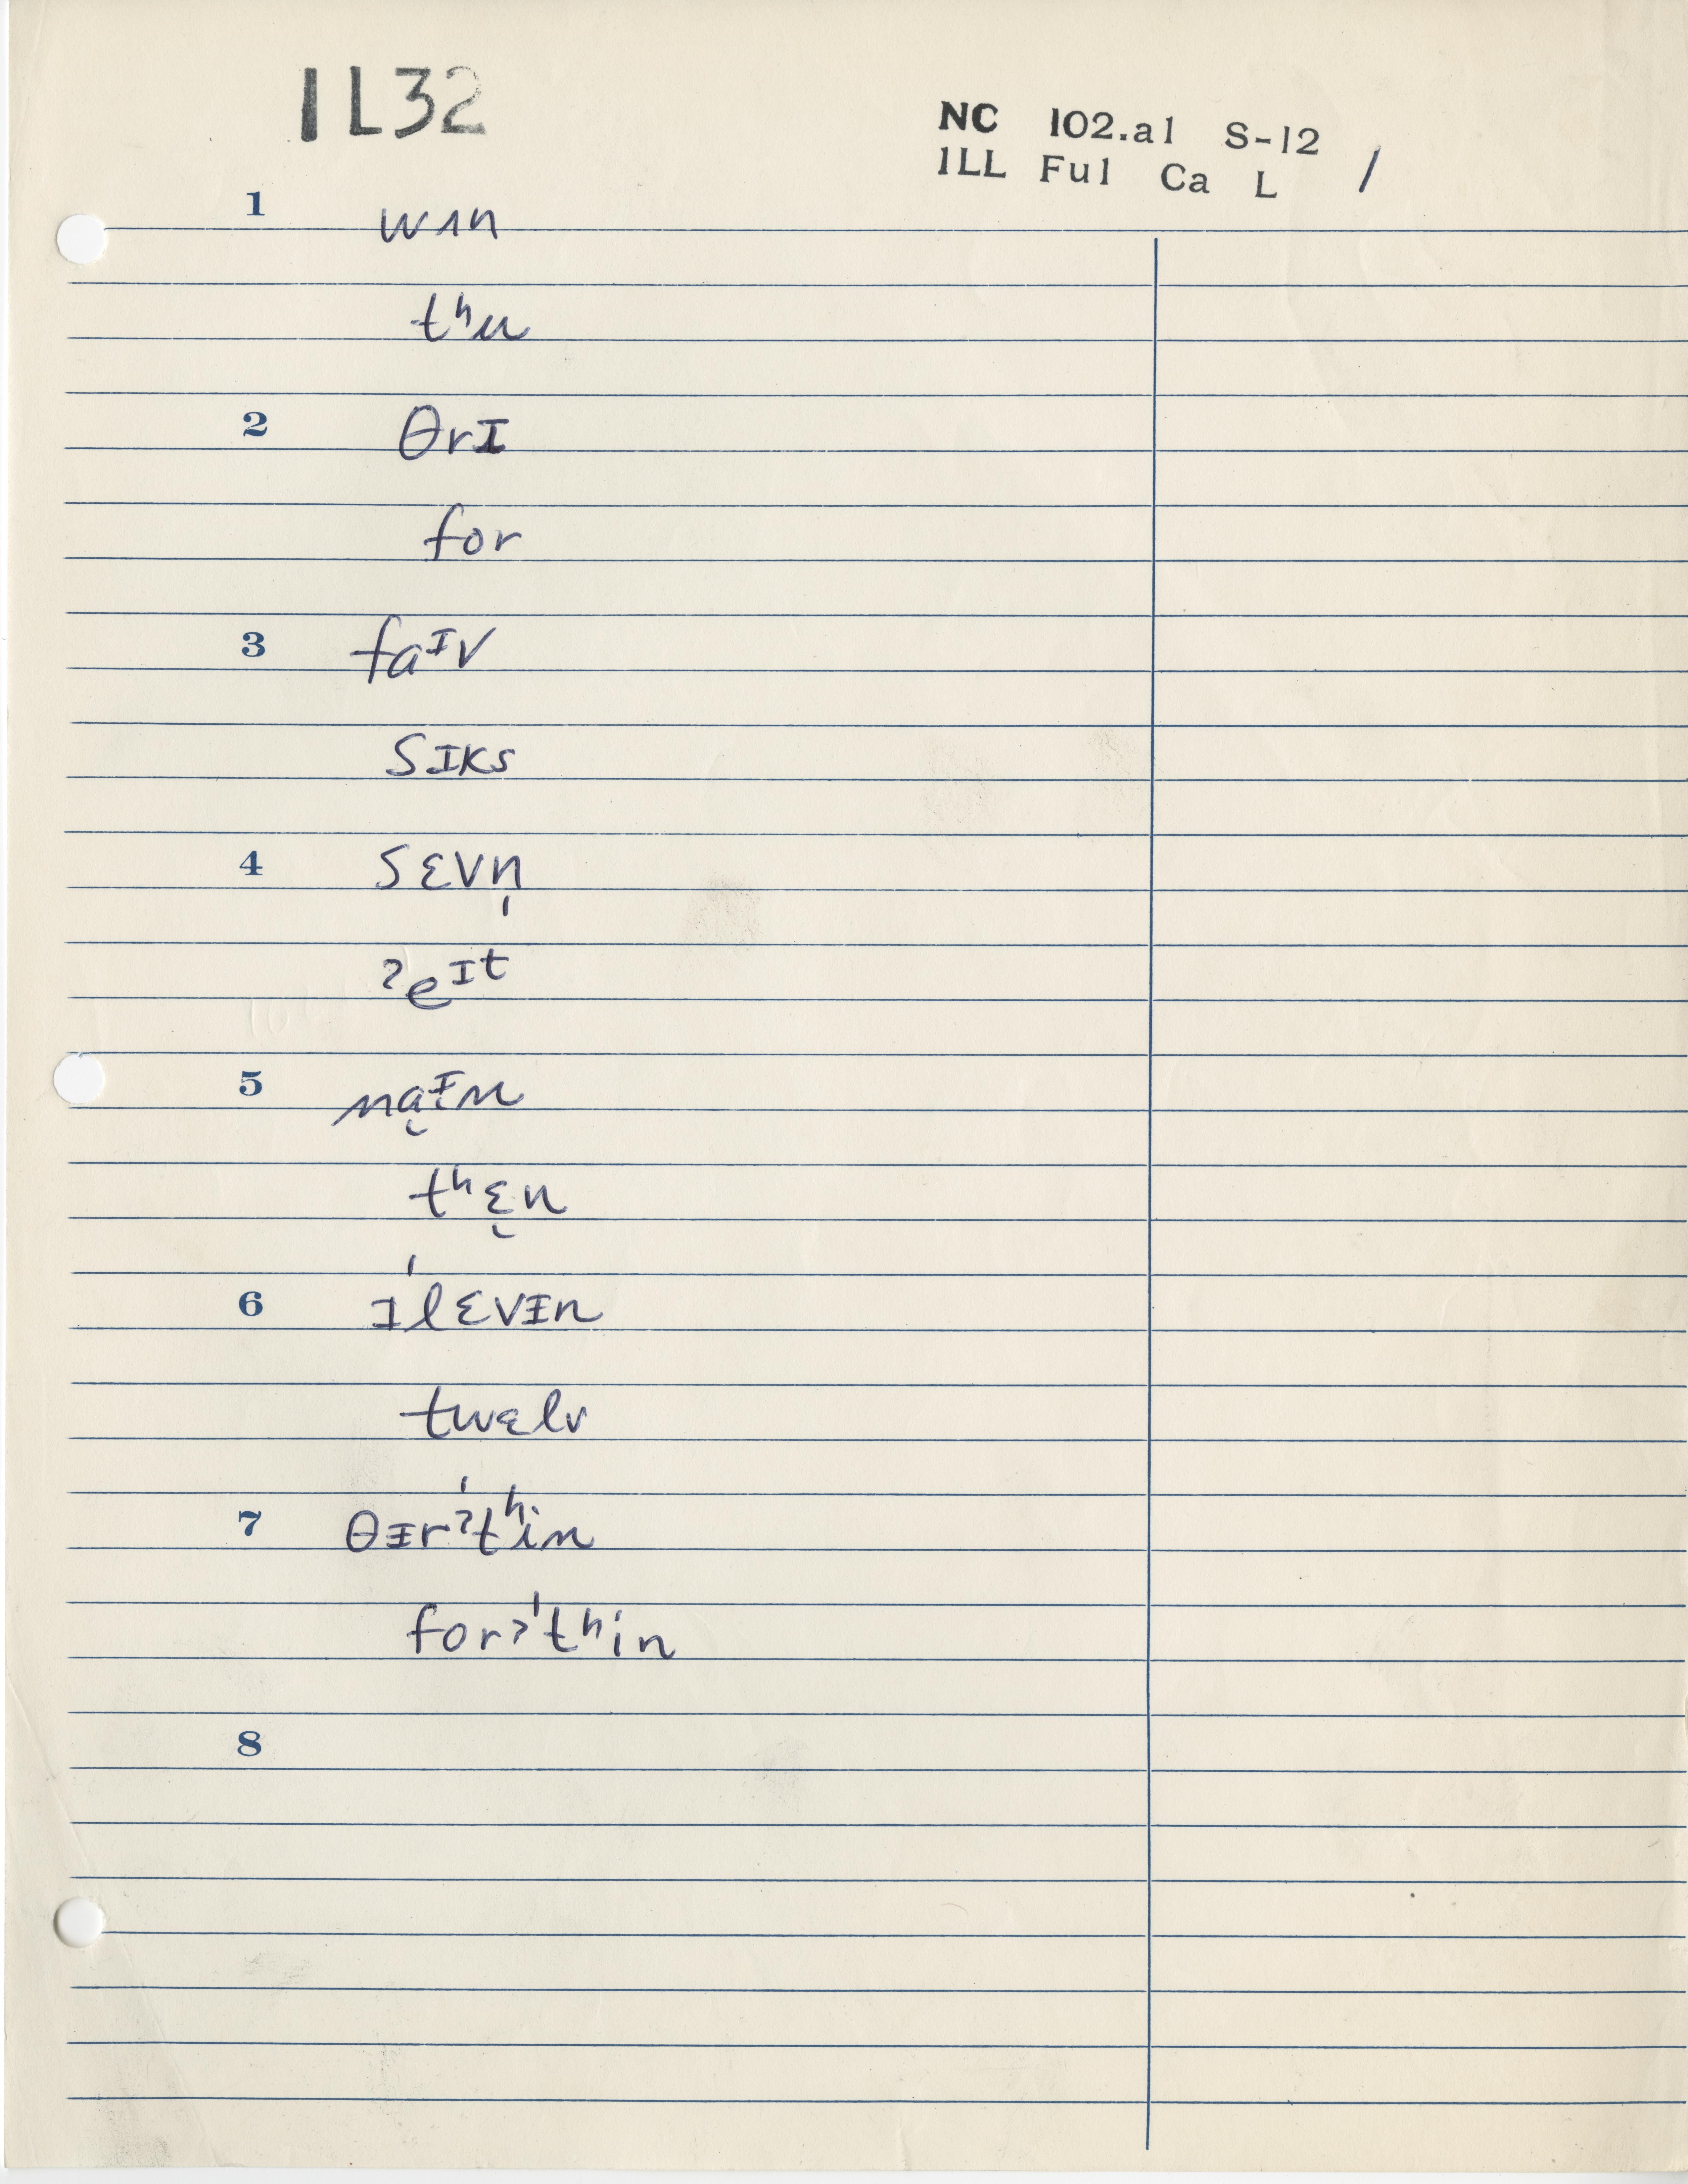 1L32
NC 102.a1 S-12 /
ILL Ful Ca L
1 wʌn
tʰu
2 θrɪ
for
3 faᶦv
sɪks
4 sɛvn̩
ˀeᶦᵗ
5 na̯ᵻn
tʰɛ̯n
6 ˈɪlɛvᵻn
twɛlv
7 θᵻrˀˈtʰin
forˀˈtʰin
8